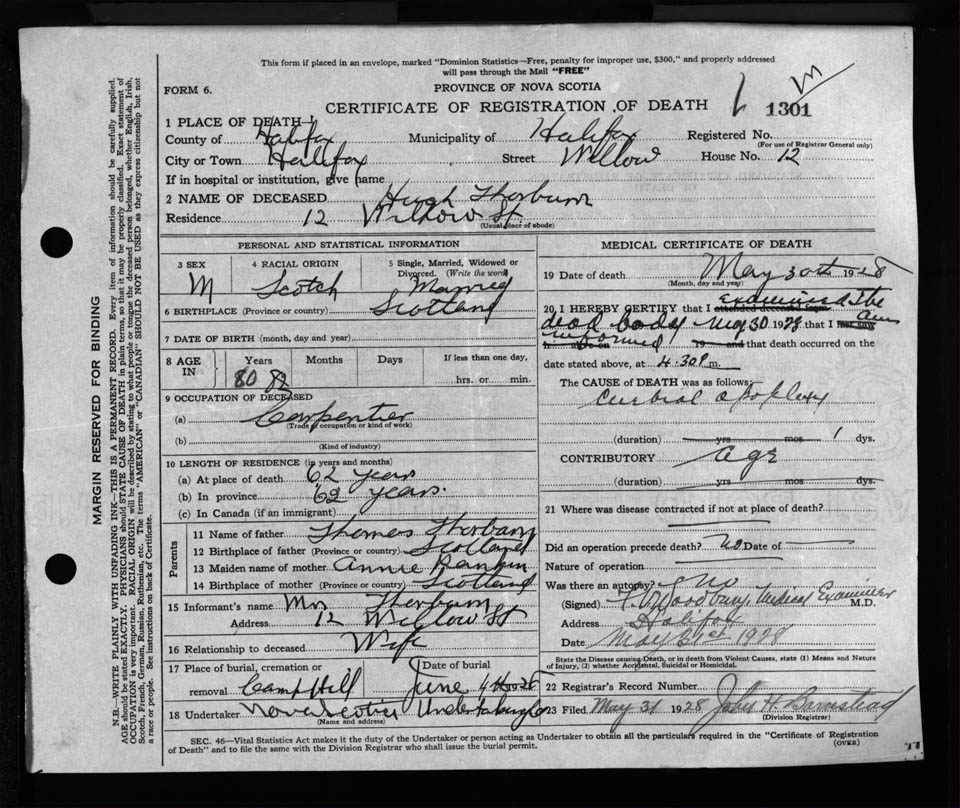 This form if placed in an envelope, marked "Dominion Statistics—Free, penalty for improper use, $300," and properly addressed
will pass through the Mail "FREE"
FORM 6.
PROVINCE OF NOVA SCOTIA
CERTIFICATE OF REGISTRATION OF DEATH
1301
1 PLACE OF DEATH—
County of Halifax Municipality of Halifax Registered No.
(For use of Registrar General only)
City or Town Halifax Street Willow House No. 12
If in hospital or institution, give name
2 NAME OF DECEASED Hugh Thorburn
Residence 12 Willow St.
(Usual place of abode)
PERSONAL AND STATISTICAL INFORMATION
3 SEX
M
4 RACIAL ORIGIN
Scotch
5 Single, Married, Widowed or
Divorced. (Write the word)
Married
6 BIRTHPLACE (Province or country) Scotland
7 DATE OF BIRTH (month, day and year)
8 AGE
IN
Years Months Days If less than one day,
80 82
hrs. or min.
9 OCCUPATION OF DECEASED
(a) Carpenter
(Trade, occupation or kind of work)
(b)
(Kind of industry)
10 LENGTH OF RESIDENCE (in years and months)
(a) At place of death 62 years
(b) In province 62 years.
(c) In Canada (if an immigrant)
Parents
11 Name of father Thomas Thorburn
12 Birthplace of father (Province or country) Scotland
13 Maiden name of mother Annie Rankin
14 Birthplace of mother (Province or country) Scotland
15 Informant's name Mrs Thorburn
Address 12 Willow St
16 Relationship to deceased Wife
17 Place of burial, cremation or Date of burial
removal Camp Hill June 1928
18 Undertaker Nova Scotia Undertaking Co
(Name and address)
MEDICAL CERTIFICATE OF DEATH
19 Date of death May 30th 1928
(Month, day and year)
20 I HEREBY CERTIFY that I attended deceased from examined the
dead body May 30 1928 that I last saw am
informed 19 and that death occurred on the
date stated above, at 4.30 P m.
The CAUSE of DEATH was as follows:
Curbial apoplexy
(duration) yrs mos 1 dys.
CONTRIBUTORY age
(duration) yrs mos dys.
21 Where was disease contracted if not at place of death?
Did an operation precede death? No Date of
Nature of operation
Was there an autopsy? no
(Signed) Woodbury, Medical Examiner M.D.
Address Halifax
Date May 31st 1928
State the Disease causing Death, or in death from Violent Causes, state (1) Means and Nature
of Injury, (2) whether Accidental, Suicidal or Homicidal.
22 Registrar's Record Number
23 Filed May 31 1928 John H. Barnstead
(Division Registrar)
SEC. 46—Vital Statistics Act makes it the duty of the Undertaker or person acting as Undertaker to obtain all the particulars required in the "Certificate of Registration
of Death" and to file the same with the Division Registrar who shall issue the burial permit.
(OVER)
MARGIN RESERVED FOR BINDING
N.B.—WRITE PLAINLY WITH UNFADING INK—THIS IS A PERMANENT RECORD. Every item of information should be carefully supplied.
AGE should be stated EXACTLY. PHYSICIANS should STATE CAUSE OF DEATH in plain terms, so that it may be properly classified. Exact statement of
OCCUPATION is very important. RACIAL ORIGIN will be described by stating to what people or tongue the deceased person belonged, whether English, Irish,
Scotch, French, German, Russian, Ruthenian, etc. The terms "AMERICAN" or "CANADIAN" SHOULD NOT BE USED as they express citizenship but not
a race or people. See instructions on back of Certificate.